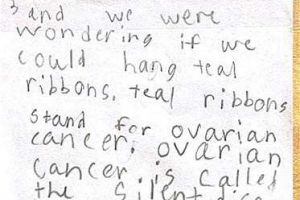 and we were
wondering if we
could hang teal
ribbons, teal ribbons
stand for ovarian
cancer. ovarian
cancer is called
the silent